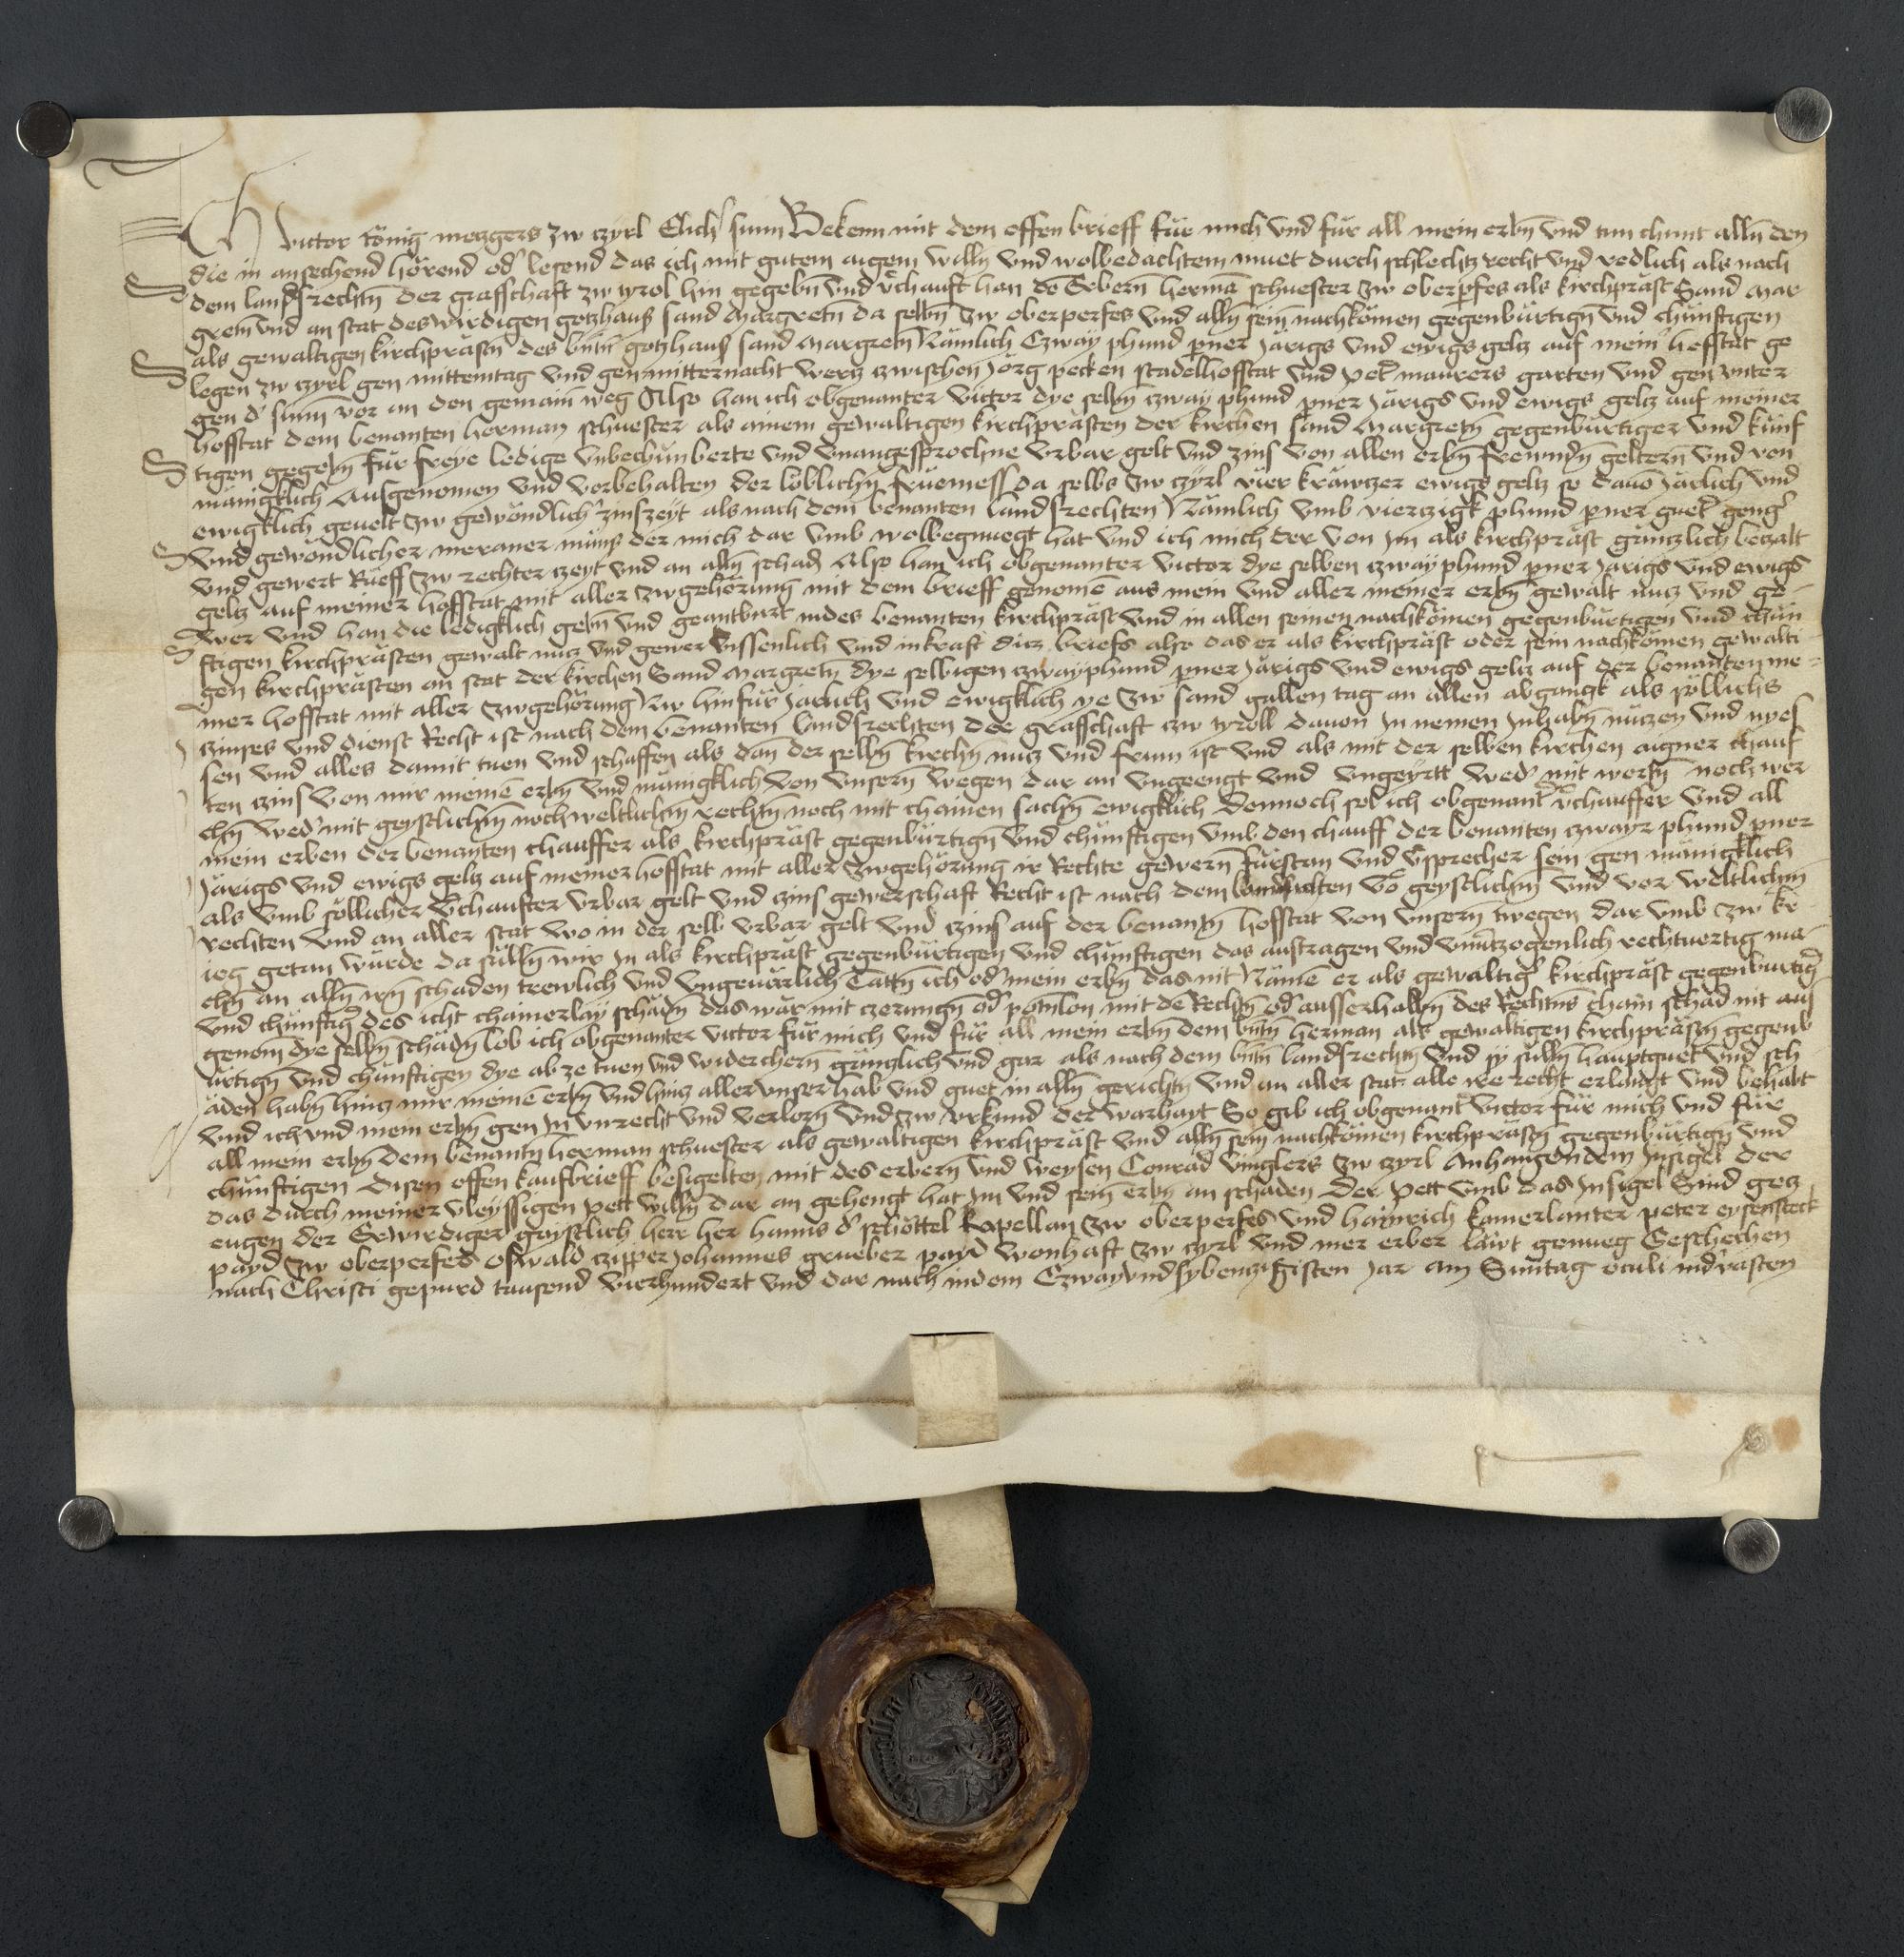 Ich victor köing mezgers zw czyrl Elich' sunn Bekenn mit dem offen brieff für mich vnd für all mein erbn̄ vnd tun chunt alln̄ den
die in ansechend hörend od' lesend das ich mit gutem aigem willn̄ vnd wolbedachtem muet durch schlechtz recht vnd redlich als nach
dem landsrechtn̄ der graffschaft zw tyrol hin gegebn̄ vnd v'chauft han dē Erbern̄ hermā schuester zw oberperfes als kirchpräst Sand Mar
gretn̄ vnd an stat des wirdigen gotzhauß sand Margretn̄ da selbn̄ zw oberperfes vnd alln̄ sein̄ nachkömen gegenbürtign̄ vnd chünftigen
als gewaltigen kirchprästn̄ des bn̄tn̄ gotzhauß sand Margretn̄ Nämlich Czway phund p̄ner Jarigs vnd ewigs geltz auf mein' hofftat ge
legen zw czyrl gen mittemtag vnd gen mitternacht wertz czwischen Jörg pecken stadelhofftat vnd pet' maurers garten vnd gen vnter
gen d' sunn vor an den gemain weg Also han ich obgenanter victor dye selbn̄ czway phund p̄ner Järigs vnd ewigs geltz auf meiner
hofftat dem benanten herman schuester als ainem gewaltigen kirchprästen der kirchen sand Margretn̄ gegenbürtiger vnd künf
tigen gegebn̄ für freye ledige vnbechunberte vnd vnangesprochne vrbar gelt vnd zins von allen erbn̄ frewndn̄ geltern̄ vnd von
mänigklich Ausgenomen vnd vorbehalten der löblichn̄ früemess da selbs zw czyrl vier kräwczer ewigs geltz so dauō Järlich vnd
ewigklich geuelt zw gewöndlich' zinszeyt als nach dem benanten landsrechten Nämlich vmb vierczigk phund p̄ner guet' geng'
vnd gewöndlicher meraner münß der mich dar vmb wolbegnuegt hat vnd ich mich der von Im als kirchpräst gänczlich beczalt
vnd gewert Rüeff zw rechter czeyt vnd an alln̄ schadn̄ Also han ich obgenanter victor dye selben czway phund p̄ner Järigs vnd ewigs
geltz auf meiner hofftat mit aller zwgehörung mit dem brieff genomē aus mein vnd aller meiner erbn̄ gewalt nucz vnd ge-
wer vnd han die ledigklich gebn̄ vnd geantburt in des benanten kirchpräst vnd in allen seinen nachkömen gegenbürtigen vnd chün
ftigen kirchprästen gewalt nucz vnd gewer wissenlich vnd in kraft dicz briefs also das er als kirchpräst oder sein nachkömen gewalti
gen kirchprästen an stat der kirchen Sand Margretn̄ dye selbigen czway phund p̄ner Järigs vnd ewigs geltz auf der benanten me-
iner hofftat mit aller zwgehörung Nw hinfür Järlich vnd ewigklich ye zw sand gallen tag an allen abgangk als söllichs
czinses vnd dienst Recht ist nach dem benanten landsrechten der graffschaft zw tyroll dauon Jn nemen Jnhabn̄ nüczen vnd nyes
sen vnd alles damit tuen vnd schaffen als dan der selbn̄ kirchn̄ nucz vnd frum ist vnd als mit der selben kirchen aigner chauf
ten czins von mir meinē erbn̄ vnd mänigklich von vnsern̄ wegen dar an vngeengt vnd vngeyrtt wed' mit worten noch wer
chn̄ wed' mit geystlichn̄ noch weltlichn̄ rechtn̄ noch mit chainen sachn̄ ewigklich Dennoch sol ich obgenant' v'chauffer vnd all
mein erben der benanten chauffer als kirchpräst gegenbürtign̄ vnd chünftigen vmb den chauff der benanten czwayr phund p̄ner
Järigs vnd ewigs geltz auf meiner hofftat mit aller zwgehörung ir Rechte gewern̄ fürstan vnd v'sprecher sein gen mänigklich
als vmb söllicher v'chaufter vrbar gelt vnd czins gewerschaft Recht ist nach dem landsrechten vō geystlichn̄ vnd vor weltlichn̄
rechten vnd an aller stat wo in der selb vrbar gelt vnd czins auf der benantn̄ hofftat von vnsern̄ wegen dar vmb zw kr
ieg getan wurde da sülln̄ wir Jn als kirchpräst gegenbürtigen vnd chünftigen das austragen vnd vnuerczogenlich rechtuertig ma-
chn̄ an alln̄ irn̄ schaden trewlich vnd vngeuärlich Tättn̄ ich od' mein erbn̄ das nit Nämē er als gewaltig' kirchpräst gegenburtig'
vnd chünftig' des icht chainerlay schadn̄ das wär mit czerungn̄ od' potnlon mit dē Rechtn̄ od' ausserhalbn̄ des Rechtns chain schad nit aus
genom̄ dye selbn̄ schädn̄ lob ich obgenanter victor für mich vnd für all mein erbn̄ dem bn̄tn̄ herman als gewaltigen kirchprästn̄ gegenb
ürtign̄ vnd chünftigen dye ab ze tuen vnd widerchern̄ gänczlich vnd gar als nach dem bn̄tn̄ landsrechtn̄ vnd sy sülln̄ hauptguet vnd sch
äden habn̄ hincz mir meinē erbn̄ vnd hincz aller vnser hab vnd guet in alln̄ gerichtn̄ vnd an aller stat alle ire recht erlangt vnd behabt
vnd ich vnd mein erbn̄ gen Jn vnrecht vnd verlorn̄ Vnd zw vrkund der warhayt So gib ich obgenant' victor für mich vnd für
all mein erbn̄ dem benantn̄ herman schuester als gewaltigen kirchpräst vnd alln̄ sein̄ nachkömen kirchprästn̄ gegenbürtign̄ vnd
chünftigen disen offen kaufbrieff besigelten mit des erbern̄ vnd weysen Conrad vinglers zw czyrl Anhangendem Jnsigel der
das durch meiner vleyssigen pett willn̄ dar an gehengt hat Jm vnd sein̄ erbn̄ an schaden Der pett vmb das Jnsigel Sind gecz
eugen der Erwirdiger geystlich herr her hanns d' schöttel kapellan zw oberperfes vnd hainrich kamerlanter peter eysensteck
payd zw oberperfes oswald czipper Johannes grueber payd wonhaft zw czyrl vnd mer erber läwt genueg Geschechen
nach Christi gepurd tausend vierhundert vnd dar nach in dem Czwayvndsybenczigisten Jar Am Suntag oculi in d' vasten